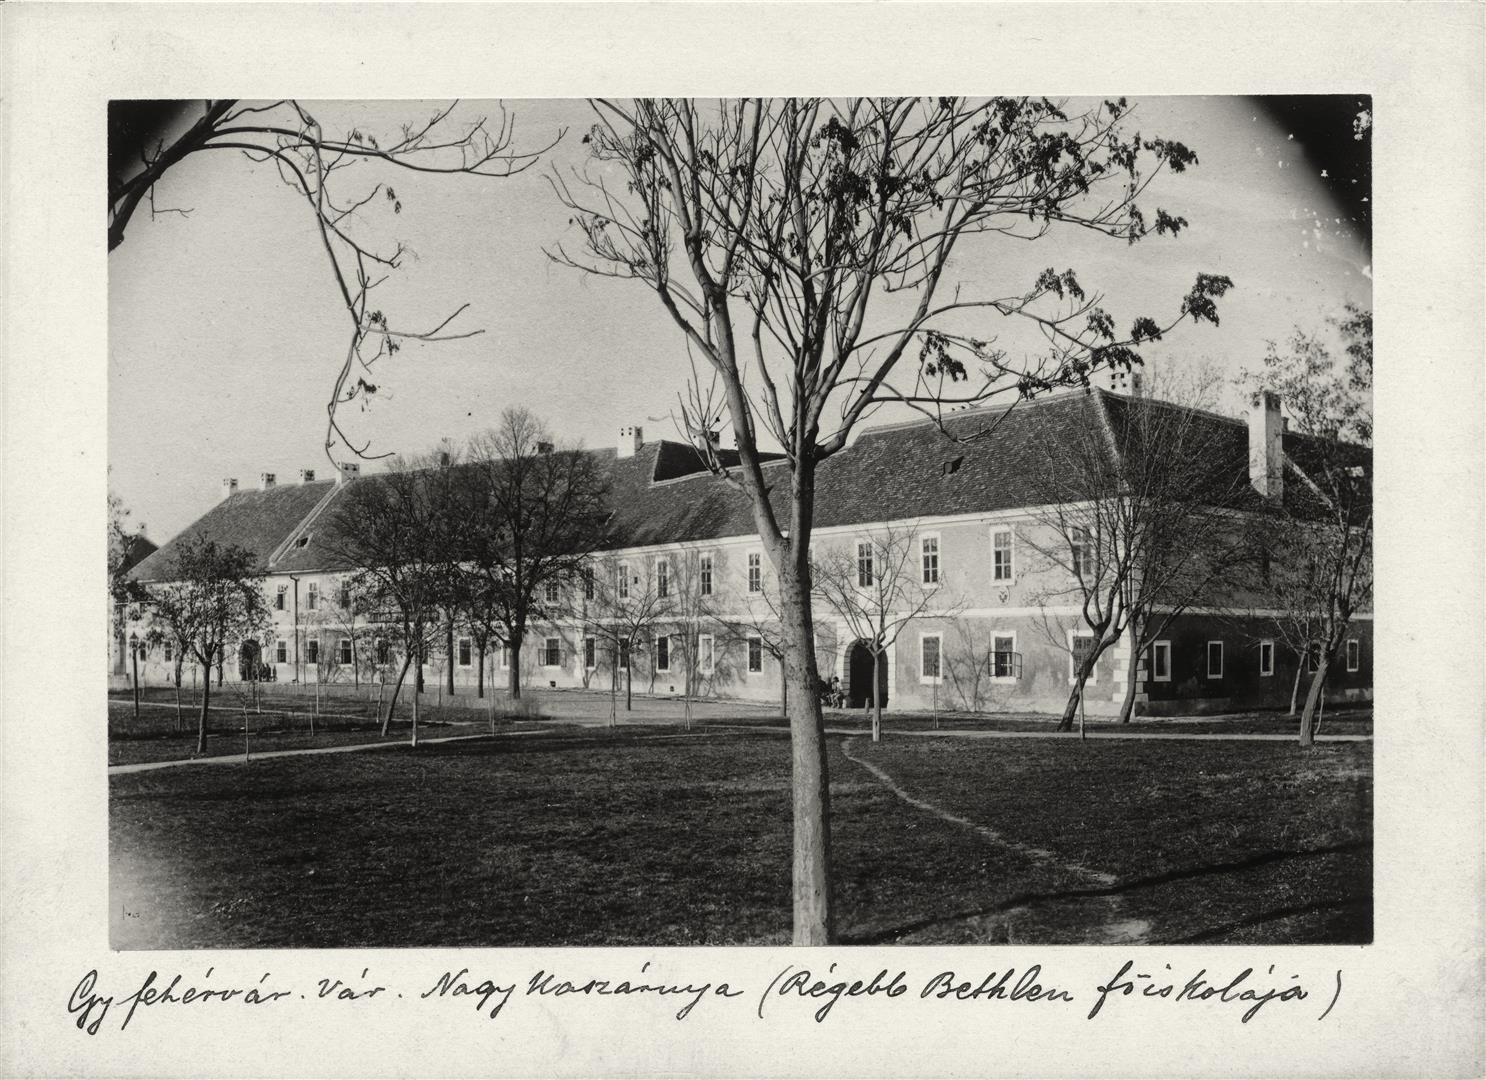 Gyfehérvár. Vár. Nagy Kaszárnya (Régebb Bethlen főiskolája)